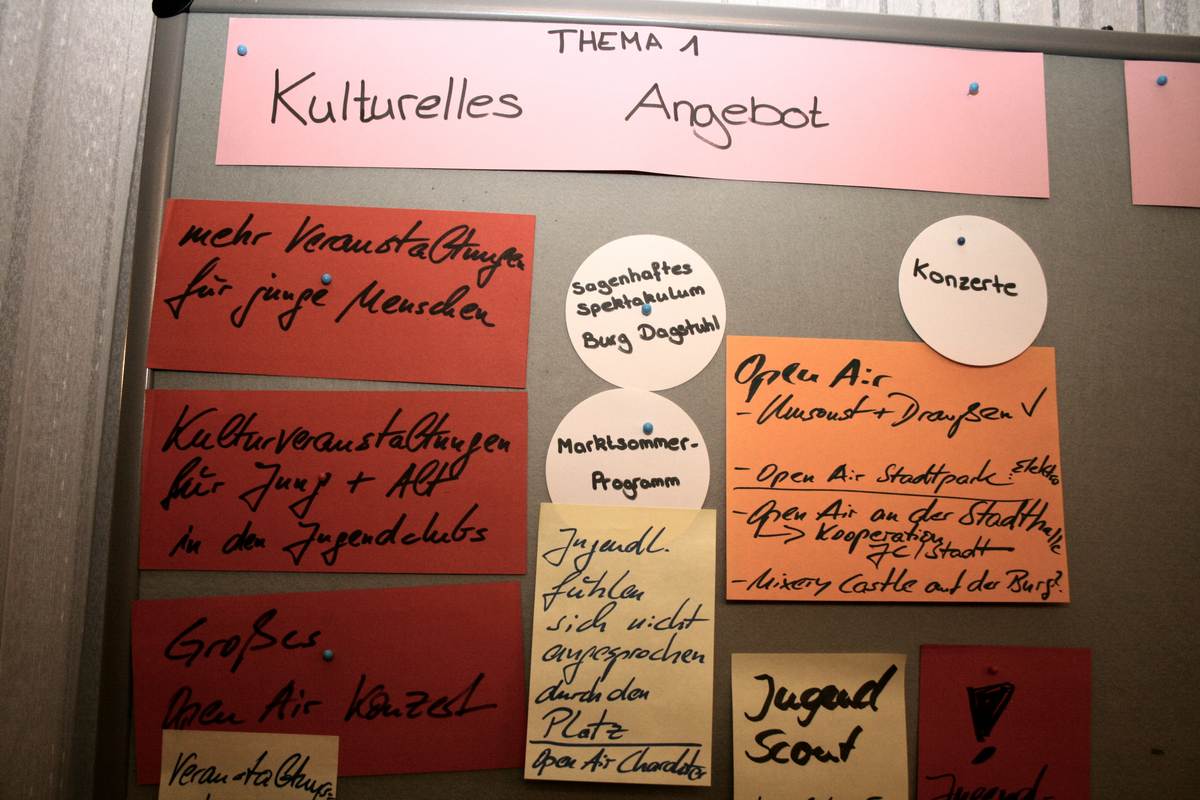 THEMA 1
Kulturelles Angebot
mehr Veranstaltungen
für junge Menschen
Kulturveranstaltungen
für Jung + Alt
in den Jugendclubs
Großes
Open Air Konzert
Veranstaltungs-
Sagenhaftes
Spektakulum
Burg Dagstuhl
Marktsommer-
Programm
Jugendl.
fühlen
sich nicht
angesprochen
durch den
Platz
Open Air Charakter
Konzerte
Open Air
- Umsonst + Draußen ✓
- Open Air Stadtpark: Elektro
- Open Air an der Stadthalle
↳ Kooperation
JC / Stadt
- Mixery Castle auf der Burg?
Jugend
Scout
!
Jugend-